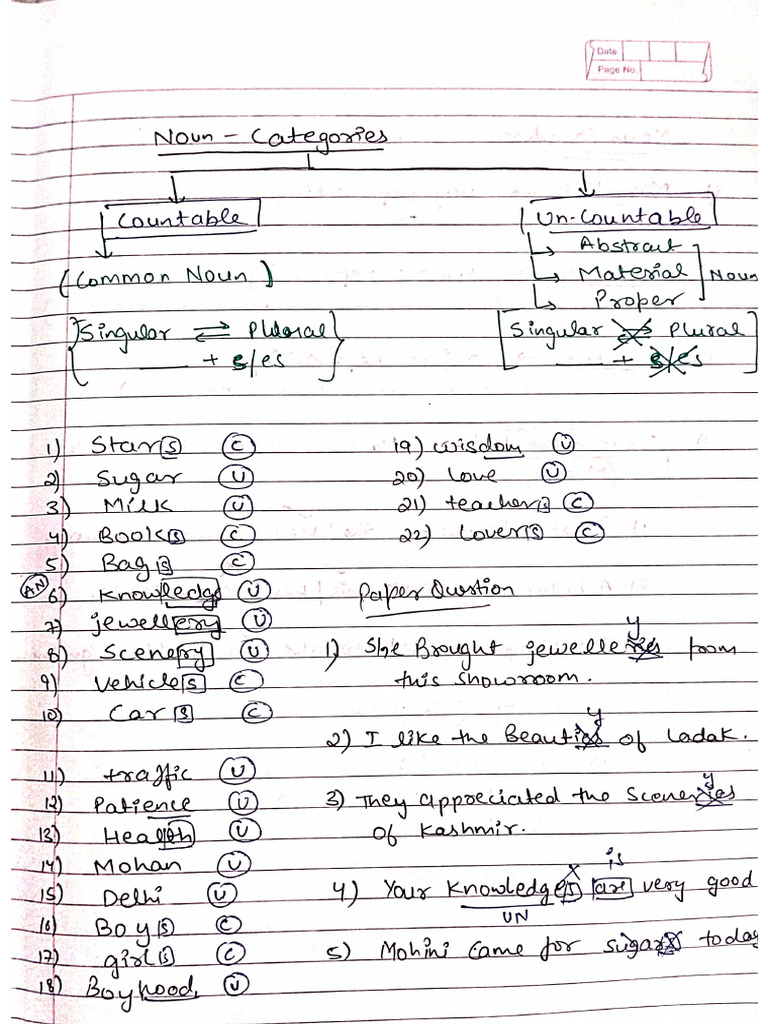 Date
Page No.
Noun - Categories
Countable
Un-Countable
(Common Noun)
Abstract
Material
Proper
Noun
Singular ⇌ Plural
+ s/es
Singular ⇌ Plural
+ s/es
1) Stars C
2) Sugar U
3) Milk U
4) Books C
5) Bags C
AN
6) Knowledge U
7) jewellery U
8) Scenery U
9) Vehicles C
10) Cars C
11) traffic U
12) Patience U
13) Health U
14) Mohan U
15) Delhi U
16) Boys C
17) girls C
18) Boyhood U
19) wisdom U
20) love U
21) teachers C
22) lovers C
Paper Question
y
1) She Brought jewelleries from
this showroom.
y
2) I like the Beauties of Ladak.
y
3) They appreciated the Sceneries
of Kashmir.
x is
4) Your Knowledges are very good
UN
5) Mohini Came for sugars today